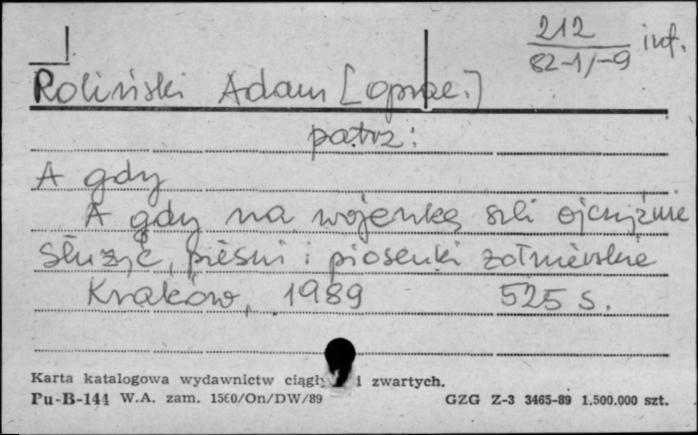 212 inf.
82-1/-9
Roliński Adam [oprac.]
patrz:
A gdy
A gdy na wojenkę szli ojczyźnie
służyć, pieśni i piosenki żołnierskie
Kraków, 1989 525 s.
Karta katalogowa wydawnictw ciągł i zwartych.
Pu-B-144 W.A. zam. 1560/On/DW/89 GZG Z-3 3465-89 1.500.000 szt.